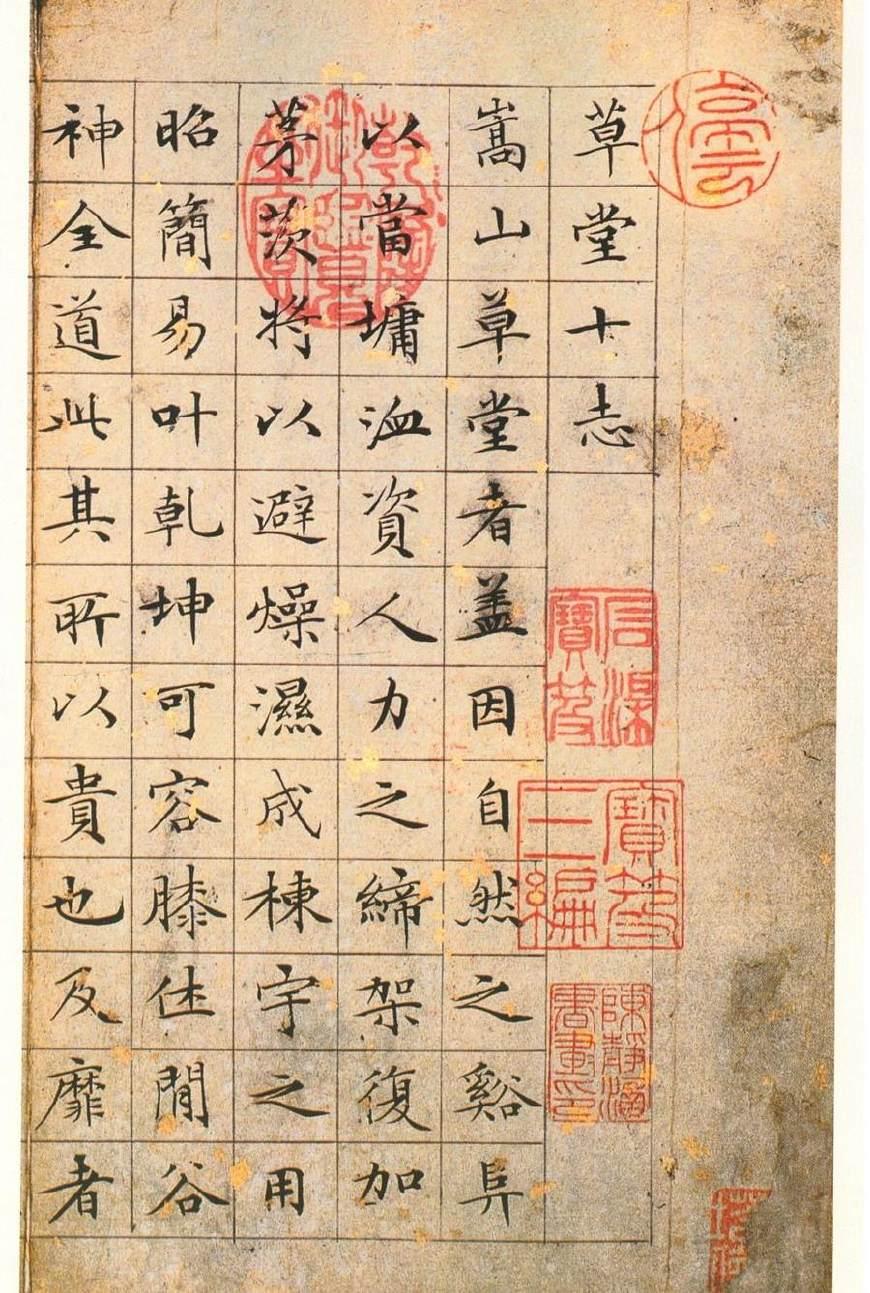 停雲
草堂十志
嵩山草堂者盖因自然之谿阜
以當墉洫資人力之締架復加
茅茨将以避燥濕成棟宇之用
昭簡易叶乾坤可容膝休閒谷
神全道此其所以貴也及靡者
石渠寶笈
寶笈三編